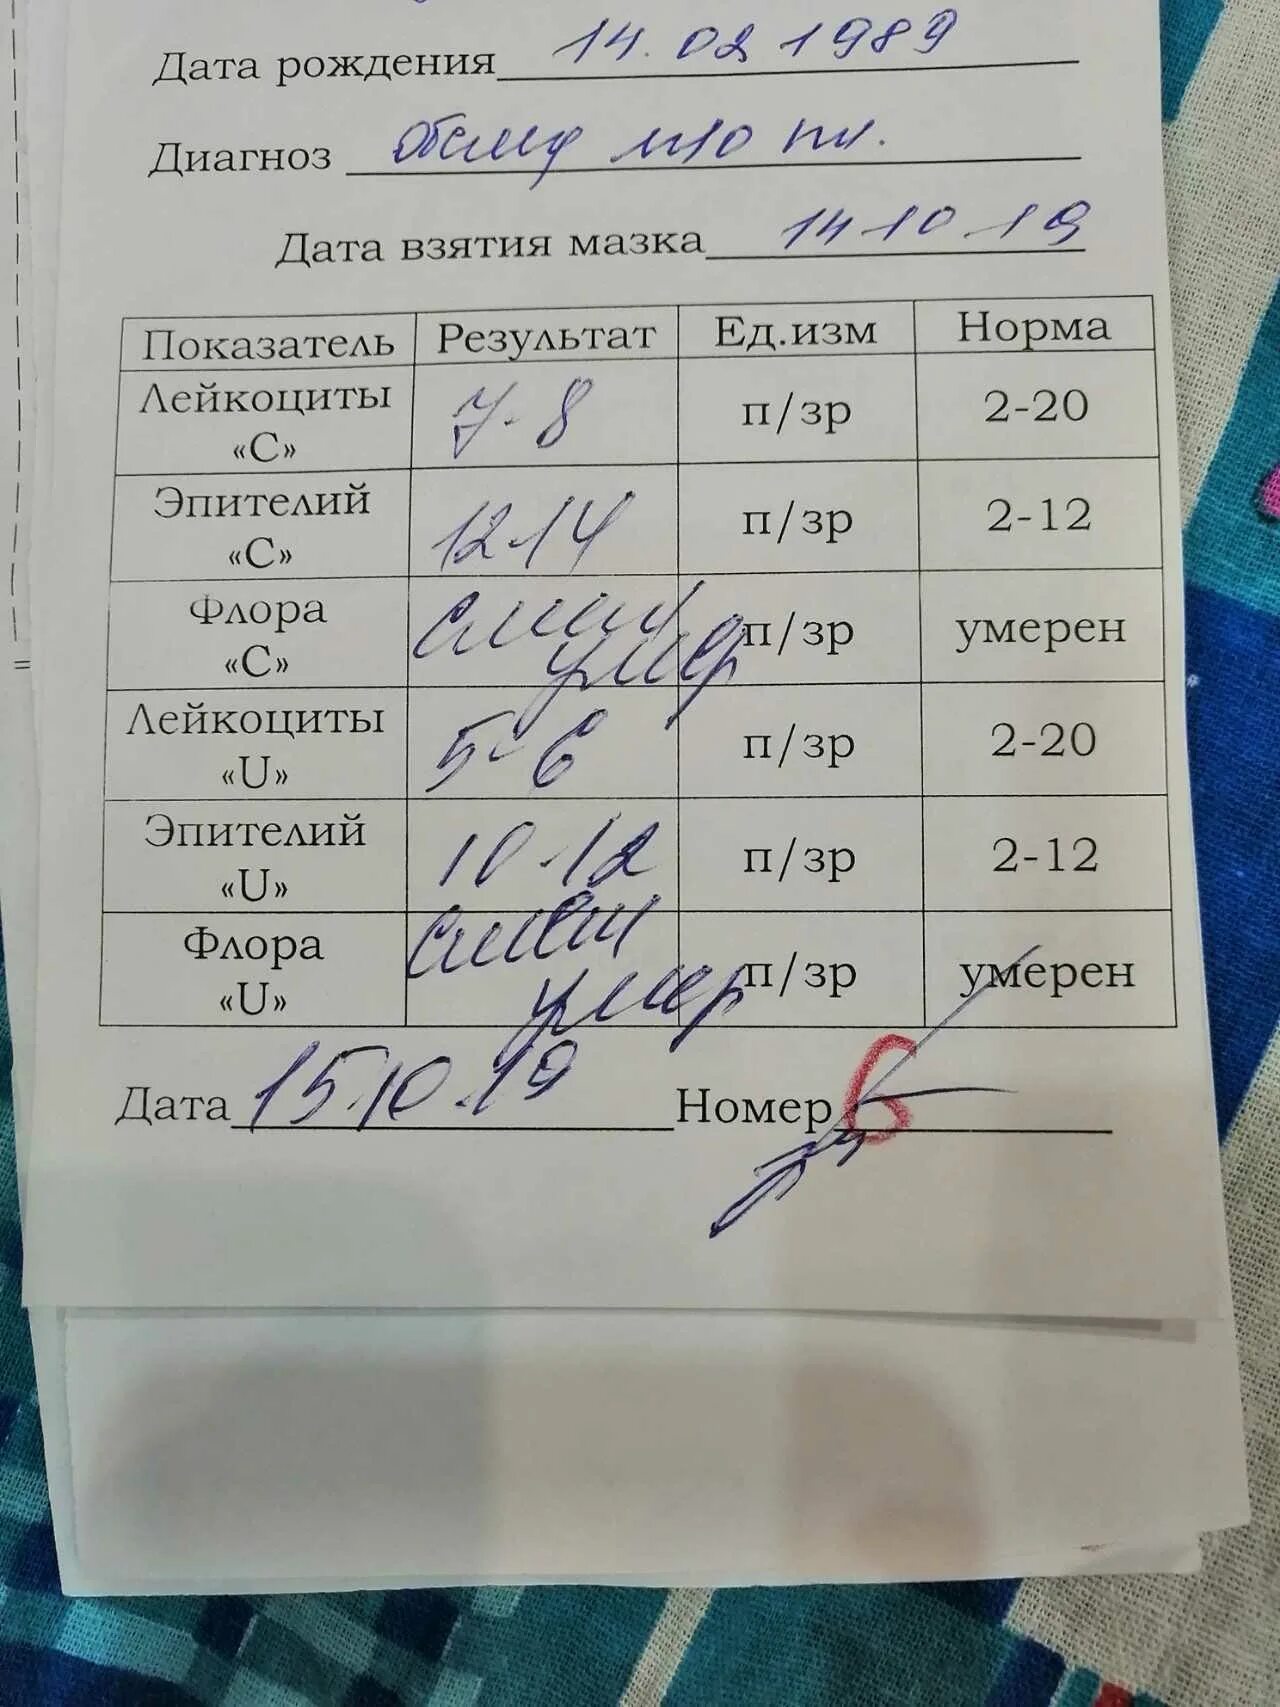 Дата рождения 14.02 1989
Диагноз
Дата взятия мазка 14 10 19
Показатель Результат Ед.изм Норма
Лейкоциты «С» 7-8 п/зр 2-20
Эпителий «С» 12-14 п/зр 2-12
Флора «С» смеш умер п/зр умерен
Лейкоциты «U» 5-6 п/зр 2-20
Эпителий «U» 10-12 п/зр 2-12
Флора «U» смеш умер п/зр умерен
Дата 15.10.19 Номер